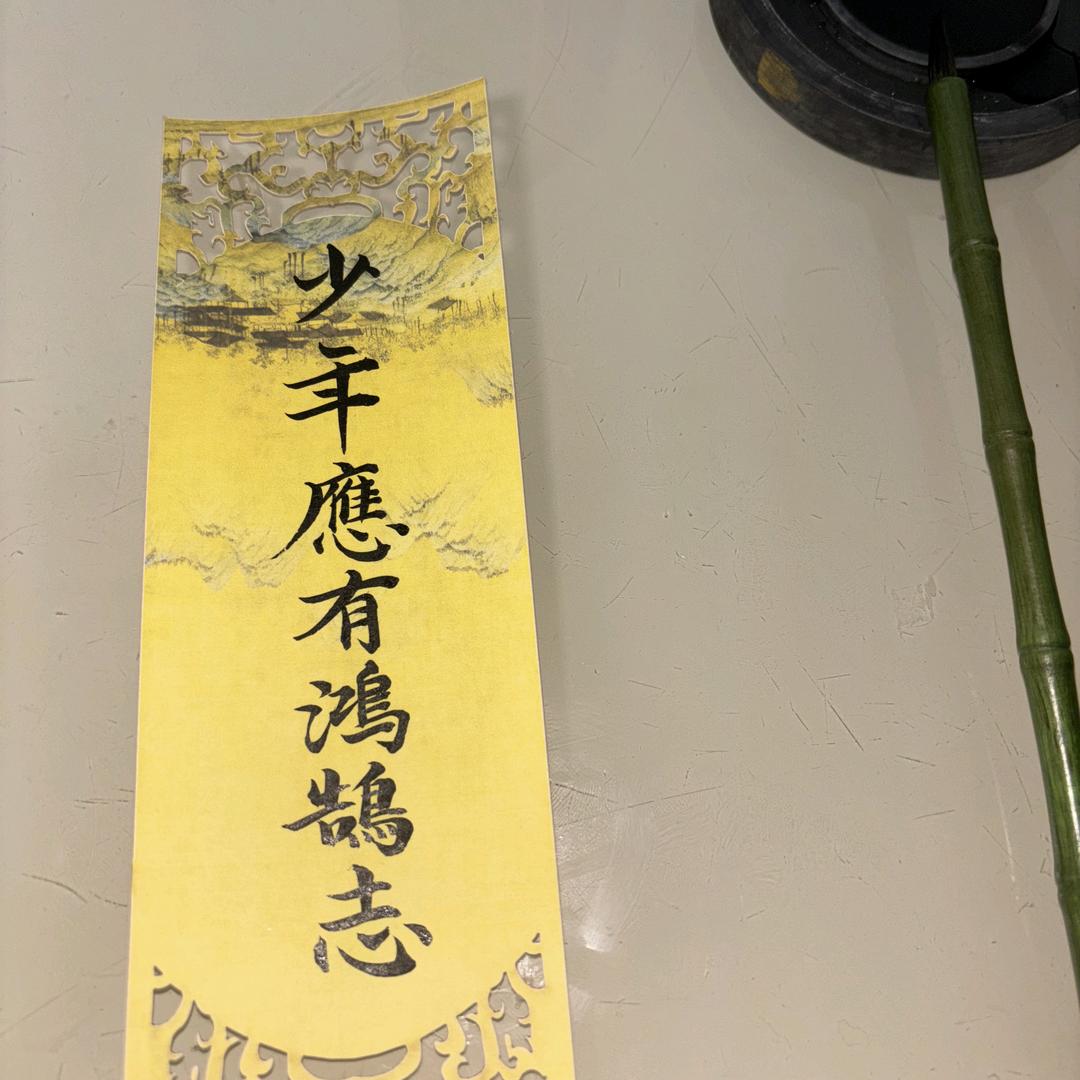 少年應有鴻鵠志